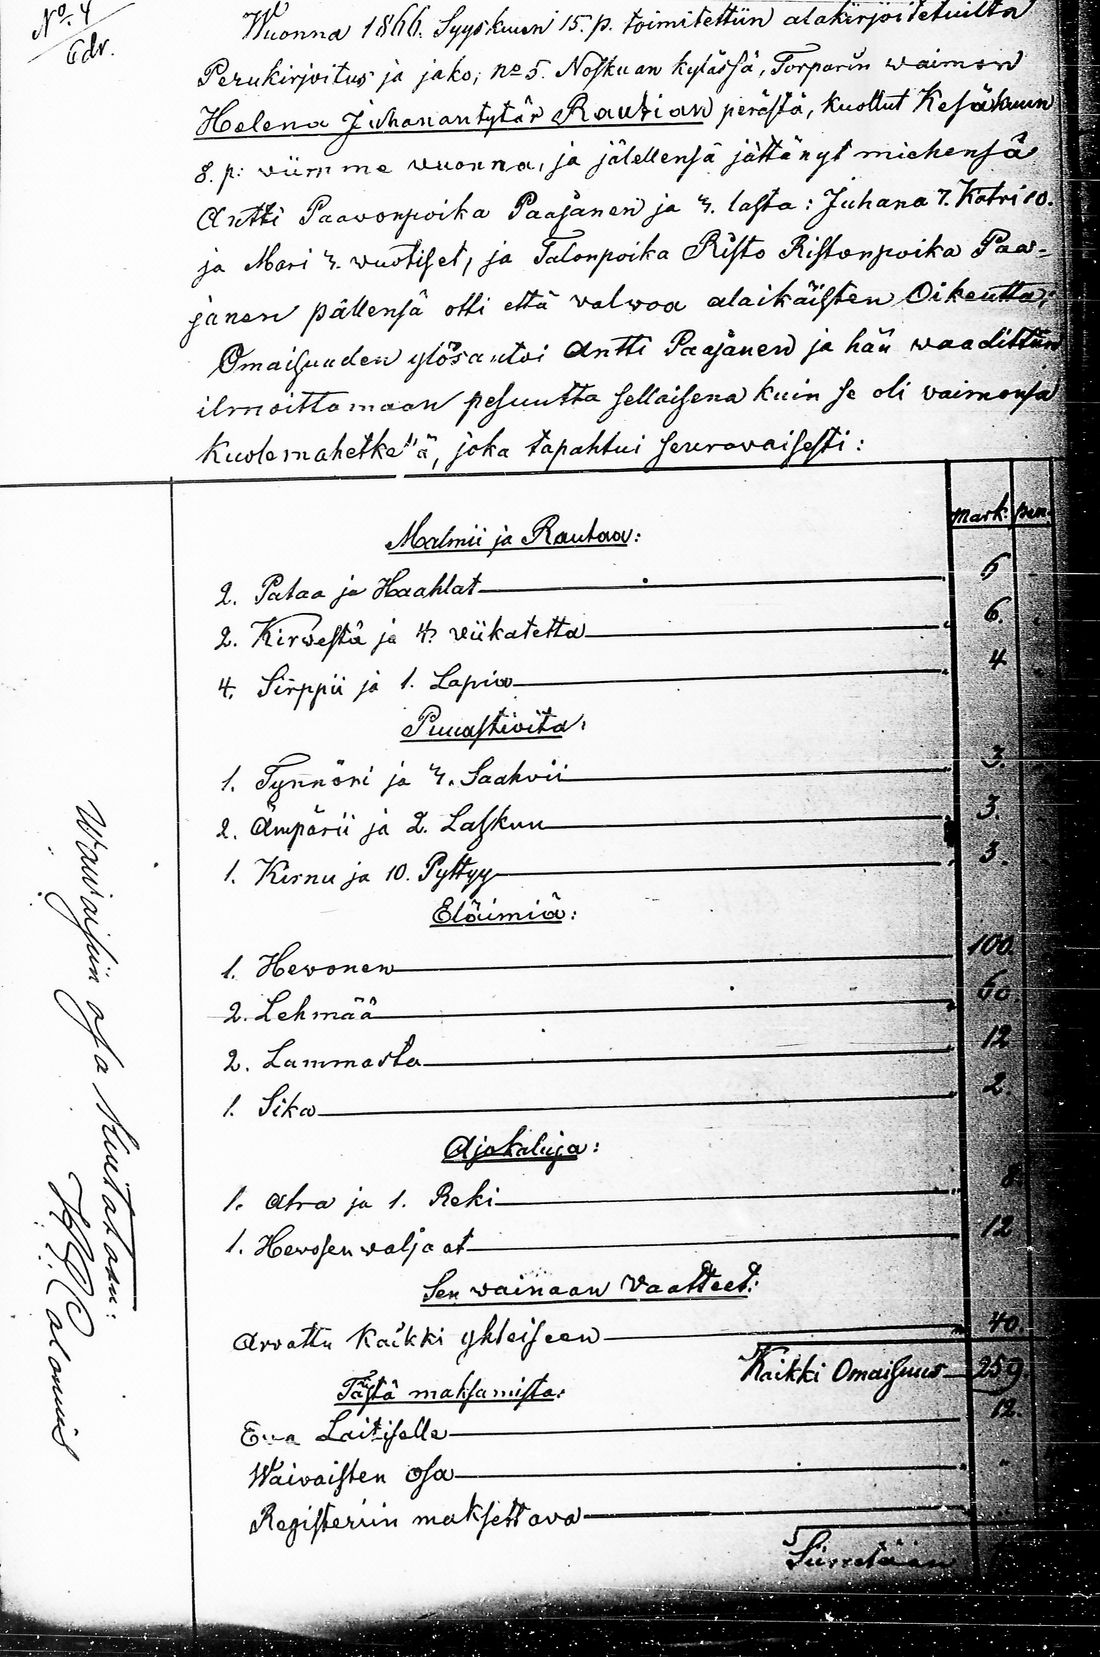 No. 4
Edr.
Wuonna 1866. Syyskuun 15. p. toimitettiin alakirjoitetuilta
Perukirjoitus ja jako, no 5. Noskuan kylässä, Torparin waimon
Helena Juhanantytär Rautian perästä, kuollut Kesäkuun
8. p: wiimme wuonna, ja jälellensä jättänyt miehensä
Antti Paavonpoika Paajanen ja 3. lasta: Juhana 7. Katri 10.
ja Mari 3. wuotiset, ja Talonpoika Risto Ristonpoika Paa-
janen pällensä otti että valwoa alaikäisten Oikeutta;
Omaisuuden ylösantoi Antti Paajanen ja hän waadittiin
ilmoittamaan pesuutta sellaisena kuin se oli vaimonsa
kuolemahetkellä, joka tapahtui seurawaisesti:
mark. pen.
Malmii ja Rautaa:
2. Pataa ja Haahlat 5
2. Kirwestä ja 4. viikatetta 6.
4. Sirppii ja 1. Lapia 4
Puuastioita:
1. Tynnöri ja 3. Saahvii 3.
2. Ämpärii ja 2. Laskuu 3.
1. Kirnu ja 10. Pyttyy 3.
Eläimiä:
1. Hevonen 100.
2. Lehmää 60.
2. Lammasta 12
1. Sika 2.
Ajokaluja:
1. Atra ja 1. Reki 8
1. Hevosen waljaat 12
Sen wainaan Vaatteet:
Arvattu kaikki yhteiseen 40.
Kaikki Omaisuus 259.
Tästä maksamista:
Eva Laitiselle 12.
Waivaisten osa "
Registeriin maksettava "
Siirretään
Waivaisiin osa kuitataan: